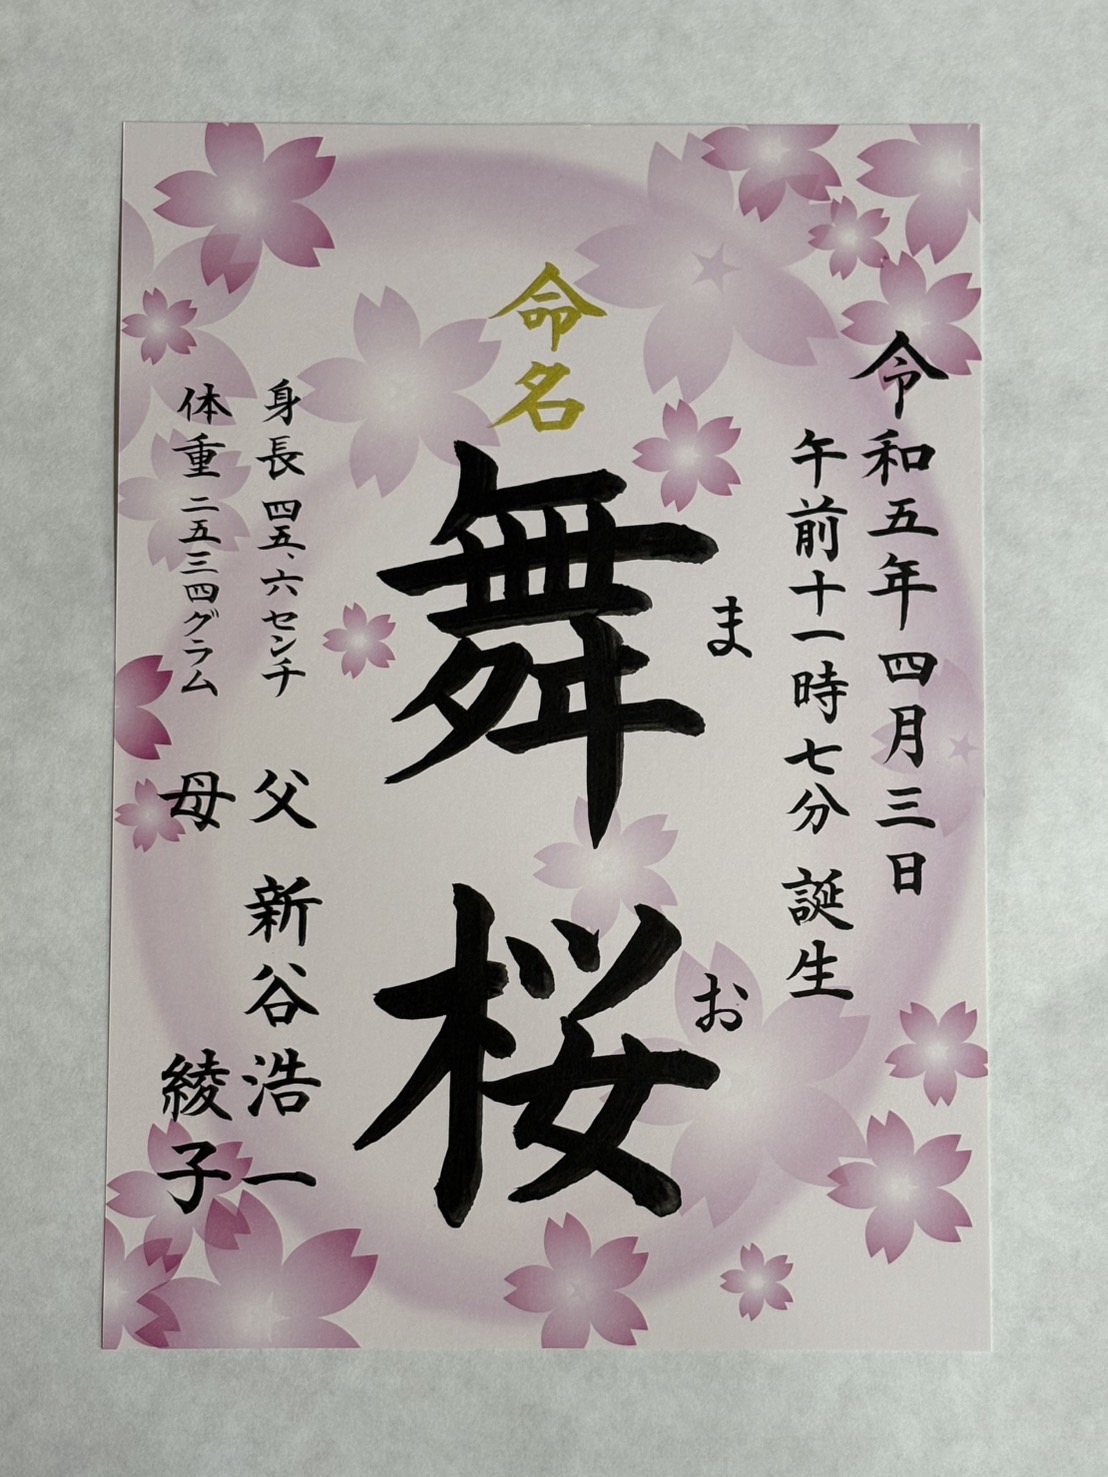 令和五年四月三日
午前十一時七分 誕生
命名
舞桜
まお
身長四五、六センチ
体重二五三四グラム
父 新谷浩一
母 綾子